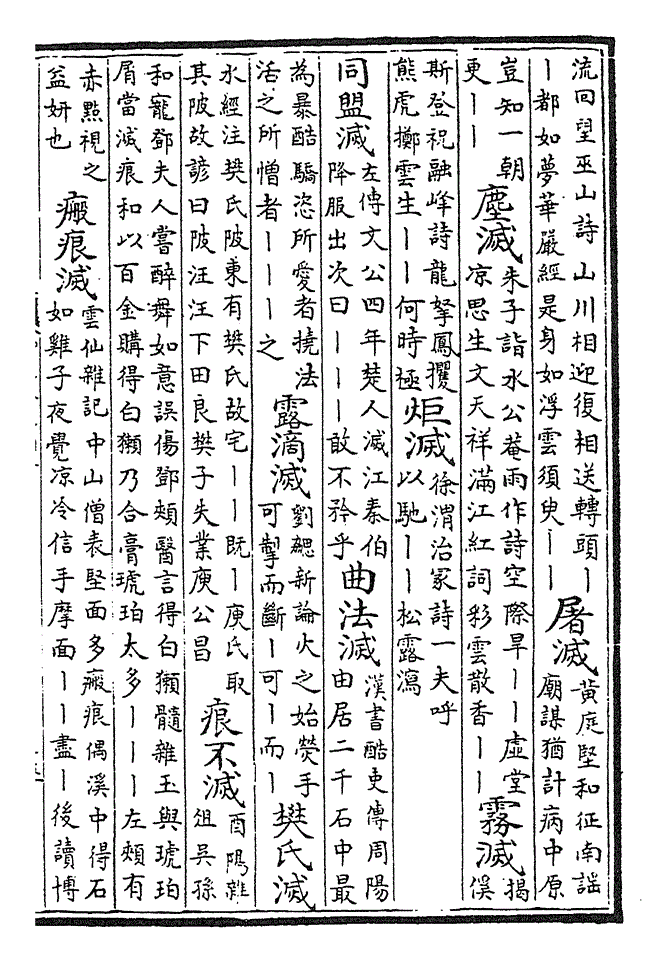 流回望巫山詩山川相迎復相送轉頭丨
丨都如夢華嚴經是身如浮雲須臾丨丨
屠滅
黃庭堅和征南謡
廟謀猶計病中原
豈知一朝
更丨丨
塵滅
朱子詣水公菴雨作詩空際旱丨丨虛堂
凉思生文天祥滿江紅詞彩雲散香丨丨
霧滅
揭
傒
斯登祝融峰詩龍拏鳳攫
熊虎擲雲生丨丨何時極
炬滅
徐渭治冢詩一夫呼
以馳丨丨松露瀉
同盟滅
左傳文公四年楚人滅江秦伯
降服出次曰丨丨丨敢不矜乎
曲法滅
漢書酷吏傳周陽
由居二千石中最
為暴酷驕恣所愛者撓法
活之所憎者丨丨丨之
露滴滅
劉勰新論火之始熒手
可掣而斷丨可丨而丨
樊氏滅
水經注樊氏陂東有樊氏故宅丨丨既丨庾氏取
其陂故諺曰陂汪汪下田良樊子失業庾公昌
痕不滅
酉陽雜
俎吳孫
和寵鄧夫人嘗醉舞如意誤傷鄧頰醫言得白獺髓雜玉與琥珀
屑當滅痕和以百金購得白獺乃合膏琥珀太多丨丨丨左頰有
赤點視之
益妍也
瘢痕滅
雲仙雜記中山僧表堅面多瘢痕偶溪中得石
如雞子夜覺凉冷信手摩面丨丨盡丨後讀博